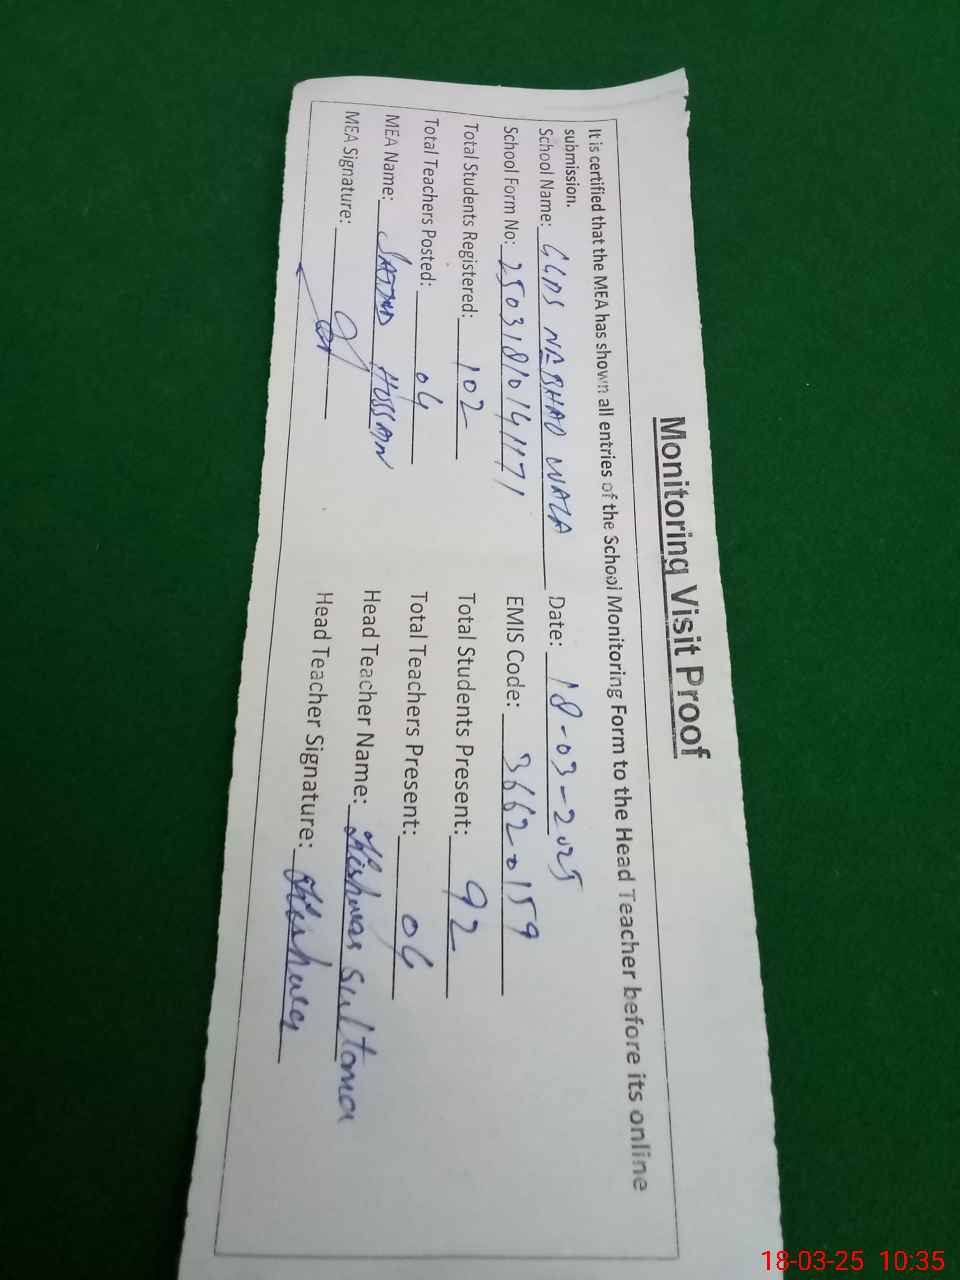 Monitoring Visit Proof
It is certified that the MEA has shown all entries of the School Monitoring Form to the Head Teacher before its online
submission.
School Name: GGPS NABHAO WALA Date: 18-03-2025
School Form No: 25031810141171 EMIS Code: 36620159
Total Students Registered: 102 Total Students Present: 92
Total Teachers Posted: 04 Total Teachers Present: 04
MEA Name: SAJJAD HUSSAIN Head Teacher Name: Kishwar Sultana
MEA Signature: Head Teacher Signature: Kishwar
18-03-25 10:35